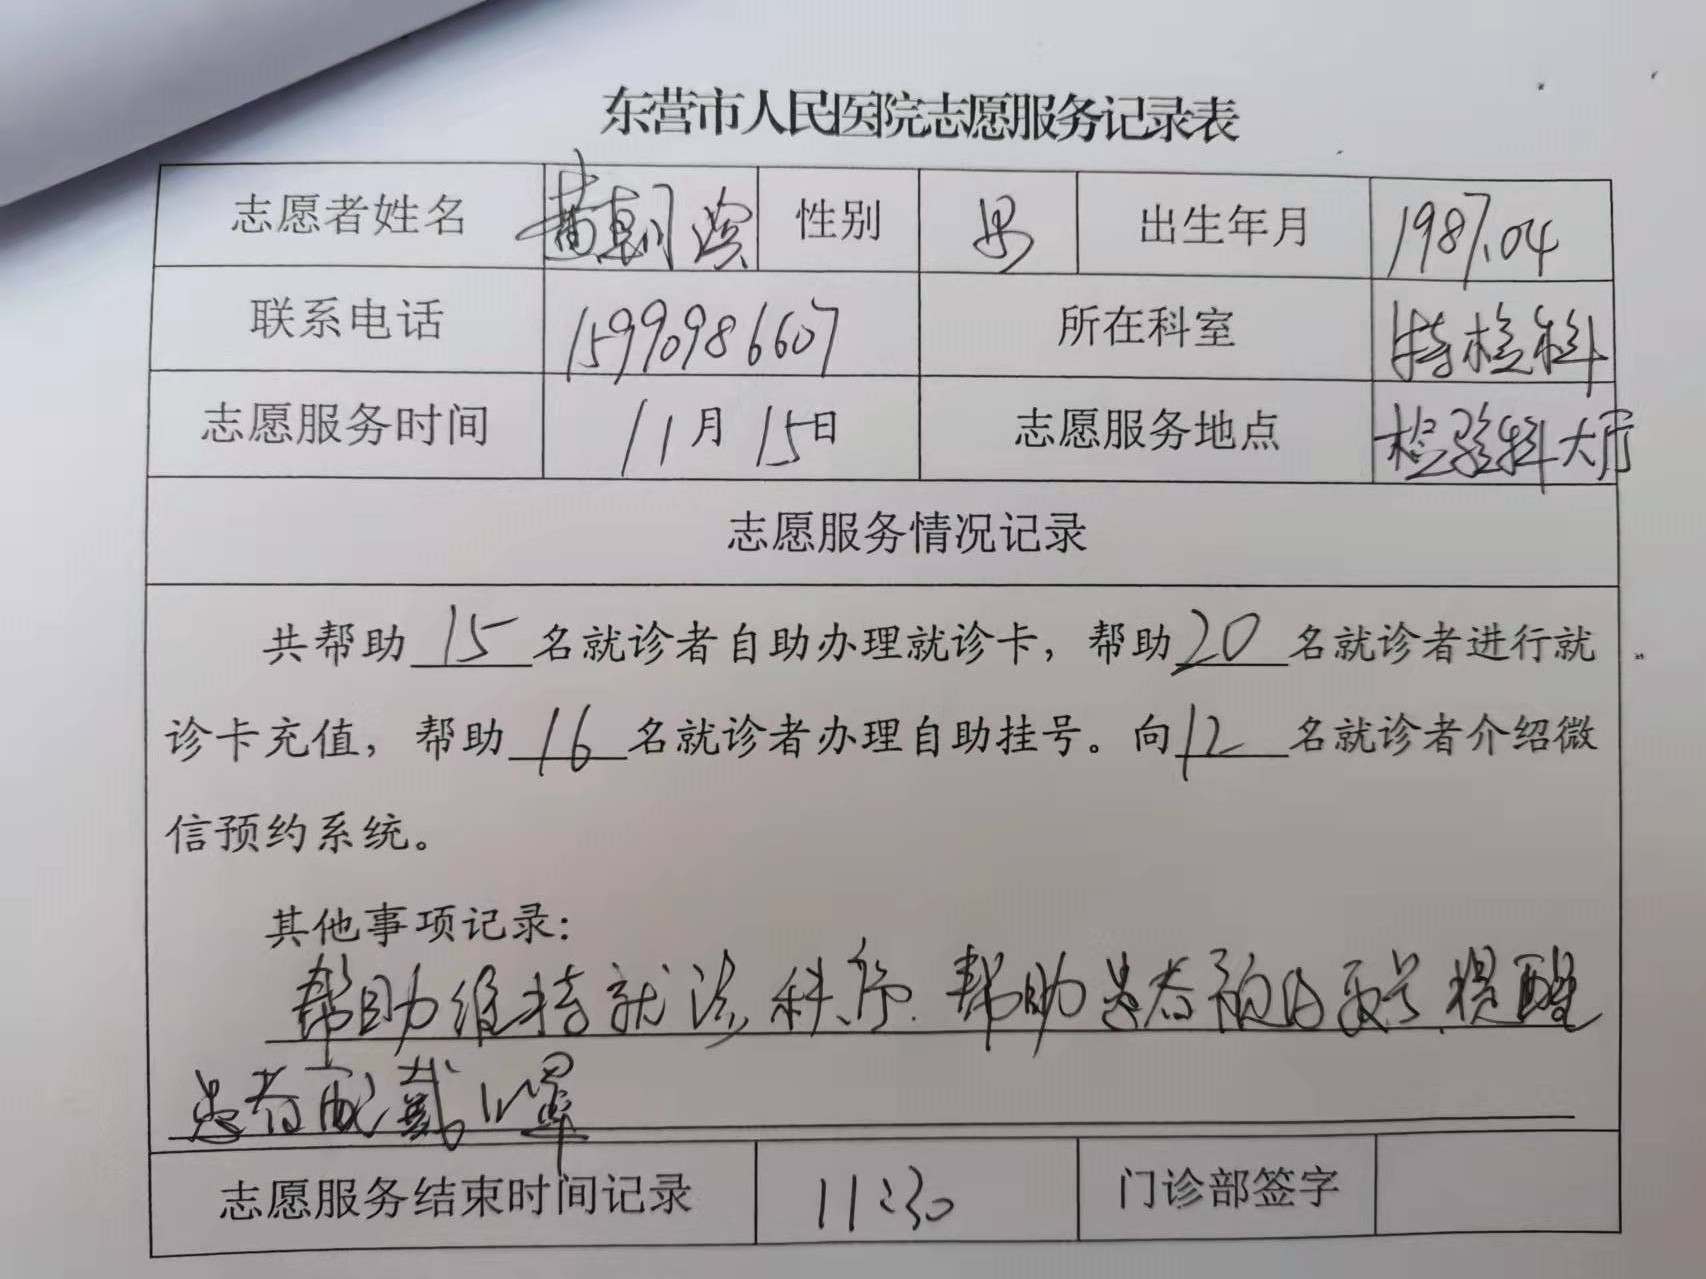 东营市人民医院志愿服务记录表
志愿者姓名 黄朝滨 性别 男 出生年月 1987.04
联系电话 15990986607 所在科室 特检科
志愿服务时间 11月15日 志愿服务地点 检验科大厅
志愿服务情况记录
共帮助15名就诊者自助办理就诊卡，帮助20名就诊者进行就
诊卡充值，帮助16名就诊者办理自助挂号。向12名就诊者介绍微
信预约系统。
其他事项记录：
帮助维持就诊秩序.帮助患者预约取号.提醒
患者配戴口罩
志愿服务结束时间记录 11:30 门诊部签字